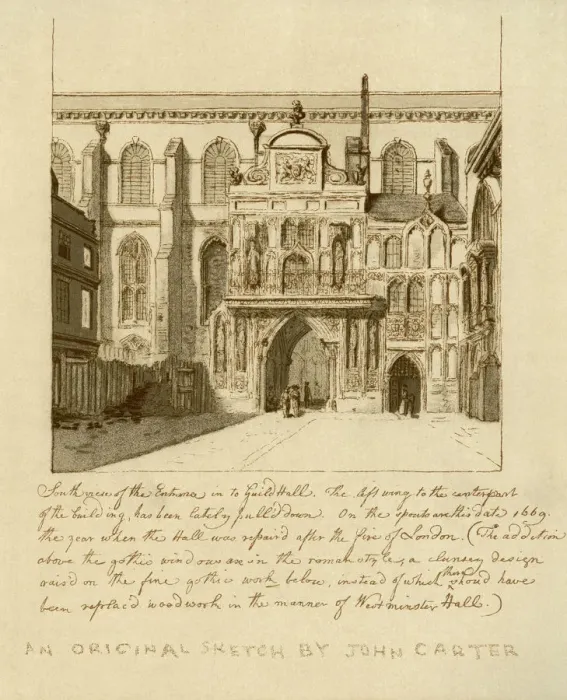 South view of the Entrance in to Guild Hall. The left wing to the center part
of the building, has been lately pull'd down. On the spouts are this date 1669.
the year when the Hall was repair'd after the fire of London. (The addition
above the gothic windows are in the roman style, a clumsey design
rais'd on the fine gothic work below, instead of which there should have
been replac'd woodwork in the manner of Westminster Hall.)
AN ORIGINAL SKETCH BY JOHN CARTER